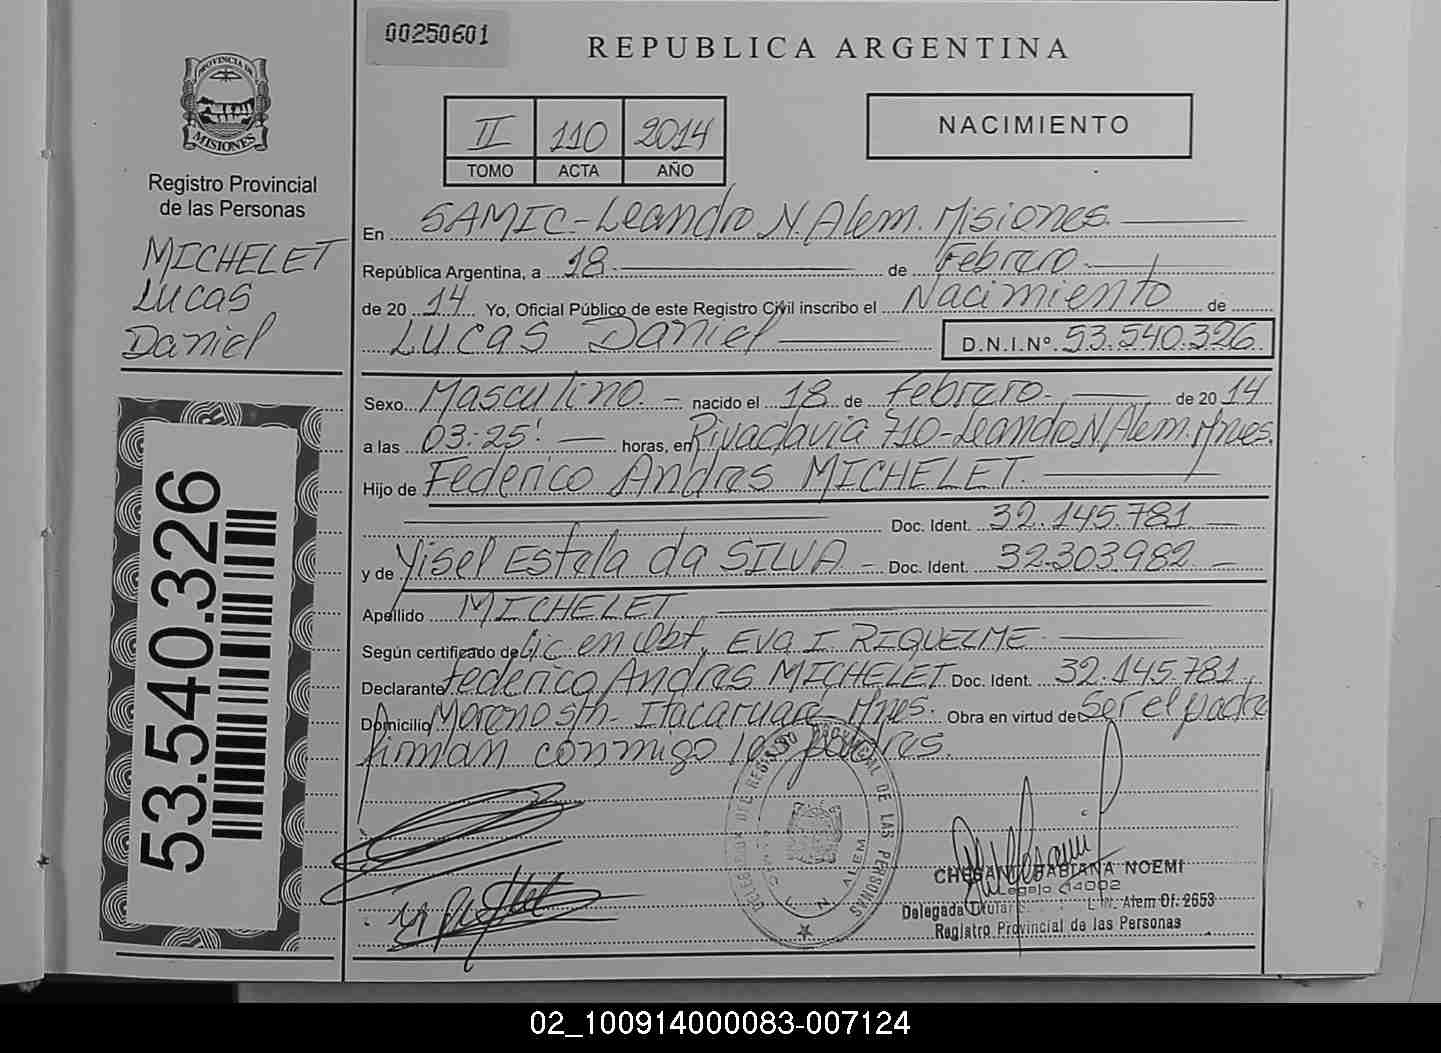 00250601
REPUBLICA ARGENTINA
PROVINCIA DE
MISIONES
Registro Provincial
de las Personas
MICHELET
Lucas
Daniel
II 110 2014
TOMO ACTA AÑO
NACIMIENTO
En SAMIC-Leandro N. Alem. Misiones.
República Argentina, a 18 de Febrero
de 2014 Yo, Oficial Público de este Registro Civil inscribo el Nacimiento de
Lucas Daniel D.N.I.Nº. 53.540.326.
Sexo Masculino. nacido el 18 de Febrero. de 2014
a las 03:25'. horas, en Rivadavia 710-Leandro N Alem. Mnes.
Hijo de Federico Andres MICHELET.
Doc. Ident. 32.145.781
y de Yisel Estela da SILVA - Doc. Ident. 32.303.982
Apellido MICHELET
Según certificado de Lic en Obt. Eva I. RIQUELME
Declarante Federico Andres MICHELET Doc. Ident. 32.145.781
Domicilio Moreno s/n. Itacaruare Mnes. Obra en virtud de Ser el padre
firman conmigo los padres.
53.540.326
DEL REGISTRO PROVINCIAL DE LAS PERSONAS
N. ALEM
FABIANA NOEMI
Legajo 14002
Delegada Titular L. N. Alem Of. 2653
Registro Provincial de las Personas
02_100914000083-007124